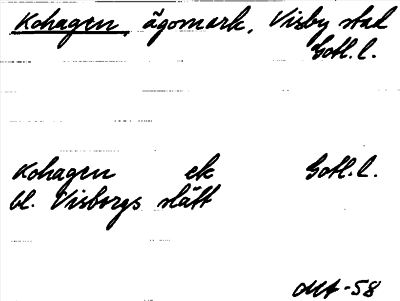 Kohagen, ägomark, Visby stad
Gotl. l.
Kohagen ek Gotl. l.
bl. Visborgs slätt